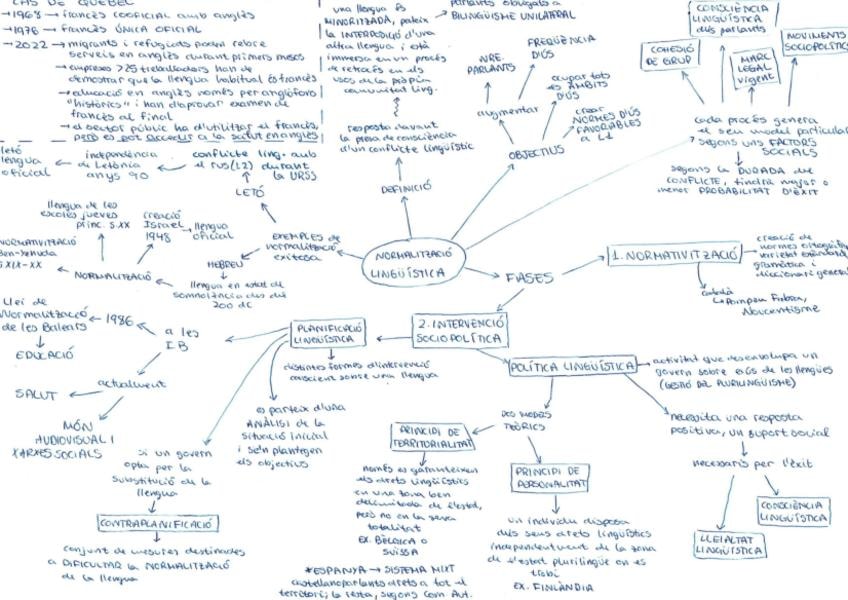 CAS DE QUEBEC
→1968→ francès cooficial amb anglès
→1976→ francès ÚNICA OFICIAL
→2022→ migrants i refugiats poden rebre
serveis en anglès durant primers mesos
→empreses >25 treballadors han de
demostrar que la llengua habitual és francès
→educació en anglès només per anglòfons
"històrics" i han d'aprovar examen de
francès al final
→el sector públic ha d'utilitzar el francès,
però es pot accedir a la salut en anglès
una llengua és
MINORITZADA, pateix
la INTERPOSICIÓ d'una
altra llengua i està
immersa en un procés
de retracés en els
usos de la pròpia
comunitat ling.
resposta davant
la presa de consciència
d'un conflicte lingüístic
DEFINICIÓ
parlants obligats a
BILINGÜISME UNILATERAL
NRE.
PARLANTS
FREQÜÈNCIA
D'ÚS
ocupar tots
els ÀMBITS
D'ÚS
augmentar
crear
NORMES D'ÚS
FAVORABLES
a L1
OBJECTIUS
CONSCIÈNCIA
LINGÜÍSTICA
dels parlants
COHESIÓ
DE GRUP
MARC
LEGAL
vigent
MOVIMENTS
SOCIOPOLÍTICS
cada procés genera
el seu model particular
segons uns FACTORS
SOCIALS
segons la DURADA del
CONFLICTE, tindrà major o
menor PROBABILITAT D'ÈXIT
letó
llengua
oficial
independència
de Letònia
anys 90
conflicte ling. amb
el rus (L2) durant
la URSS
LETÓ
llengua de les
escoles jueves
princ. s.XX
creació
Israel
1948
llengua
oficial
NORMATIVITZACIÓ
Ben-Yehuda
s.XIX-XX
NORMALITZACIÓ
HEBREU
EXEMPLES de
normalització
exitosa
llengua en estat de
somnolència des del
200 dC
NORMALITZACIÓ
LINGÜÍSTICA
FASES
1. NORMATIVITZACIÓ
creació de
normes ortogràfiques,
varietat estàndard,
gramàtica i
diccionari general
català
→Pompeu Fabra,
Noucentisme
Llei de
Normalització
de les Balears
1986
a les
IB
EDUCACIÓ
actualment
SALUT
MÓN
AUDIOVISUAL I
XARXES SOCIALS
PLANIFICACIÓ
LINGÜÍSTICA
2. INTERVENCIÓ
SOCIOPOLÍTICA
distintes formes d'intervenció
conscient sobre una llengua
es parteix d'una
ANÀLISI de la
situació inicial
i se'n plantegen
els objectius
si un govern
opta per la
substitució de la
llengua
CONTRAPLANIFICACIÓ
conjunt de mesures destinades
a DIFICULTAR la NORMALITZACIÓ
de la llengua
POLÍTICA LINGÜÍSTICA
activitat que desenvolupa un
govern sobre els ús de les llengües
(GESTIÓ DEL PLURILINGÜISME)
DOS MODELS
TEÒRICS
PRINCIPI DE
TERRITORIALITAT
només es garanteixen
els drets lingüístics
en una zona ben
delimitada de l'estat,
però no en la seva
totalitat
EX. BÈLGICA O
SUÏSSA
*ESPANYA → SISTEMA MIXT
castellanoparlants drets a tot el
territori; la resta, segons Com. Aut.
PRINCIPI DE
PERSONALITAT
un individu disposa
dels seus drets lingüístics
independentment de la zona
de l'estat plurilingüe on es
trobi
EX. FINLÀNDIA
necessita una resposta
positiva, un suport social
necessaris per l'èxit
CONSCIÈNCIA
LINGÜÍSTICA
LLEIALTAT
LINGÜÍSTICA